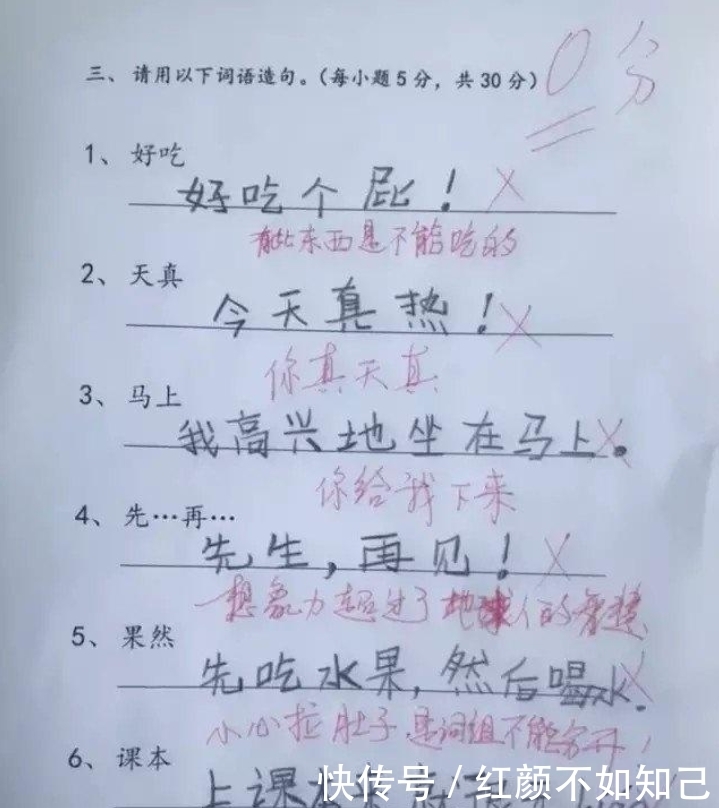 三、请用以下词语造句。(每小题5分，共30分) 0分
1、好吃
好吃个屁！
有些东西是不能吃的
2、天真
今天真热！
你真天真
3、马上
我高兴地坐在马上。
你给我下来
4、先…再…
先生，再见！
想象力超过了地球人的智慧
5、果然
先吃水果，然后喝水.
小心拉肚子.是词组不能分开！
6、课本
上课
快传号 / 红颜不如知己